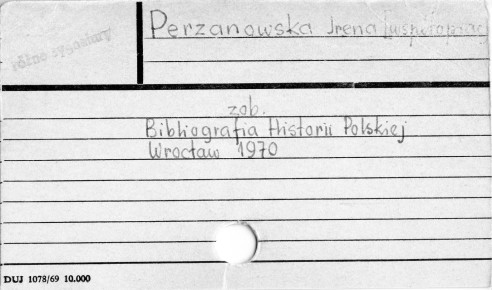 Perzanowska Irena [współoprac.]
różne sygnatury
zob.
Bibliografia Historii Polskiej
Wrocław 1970
DUJ 1078/69 10.000